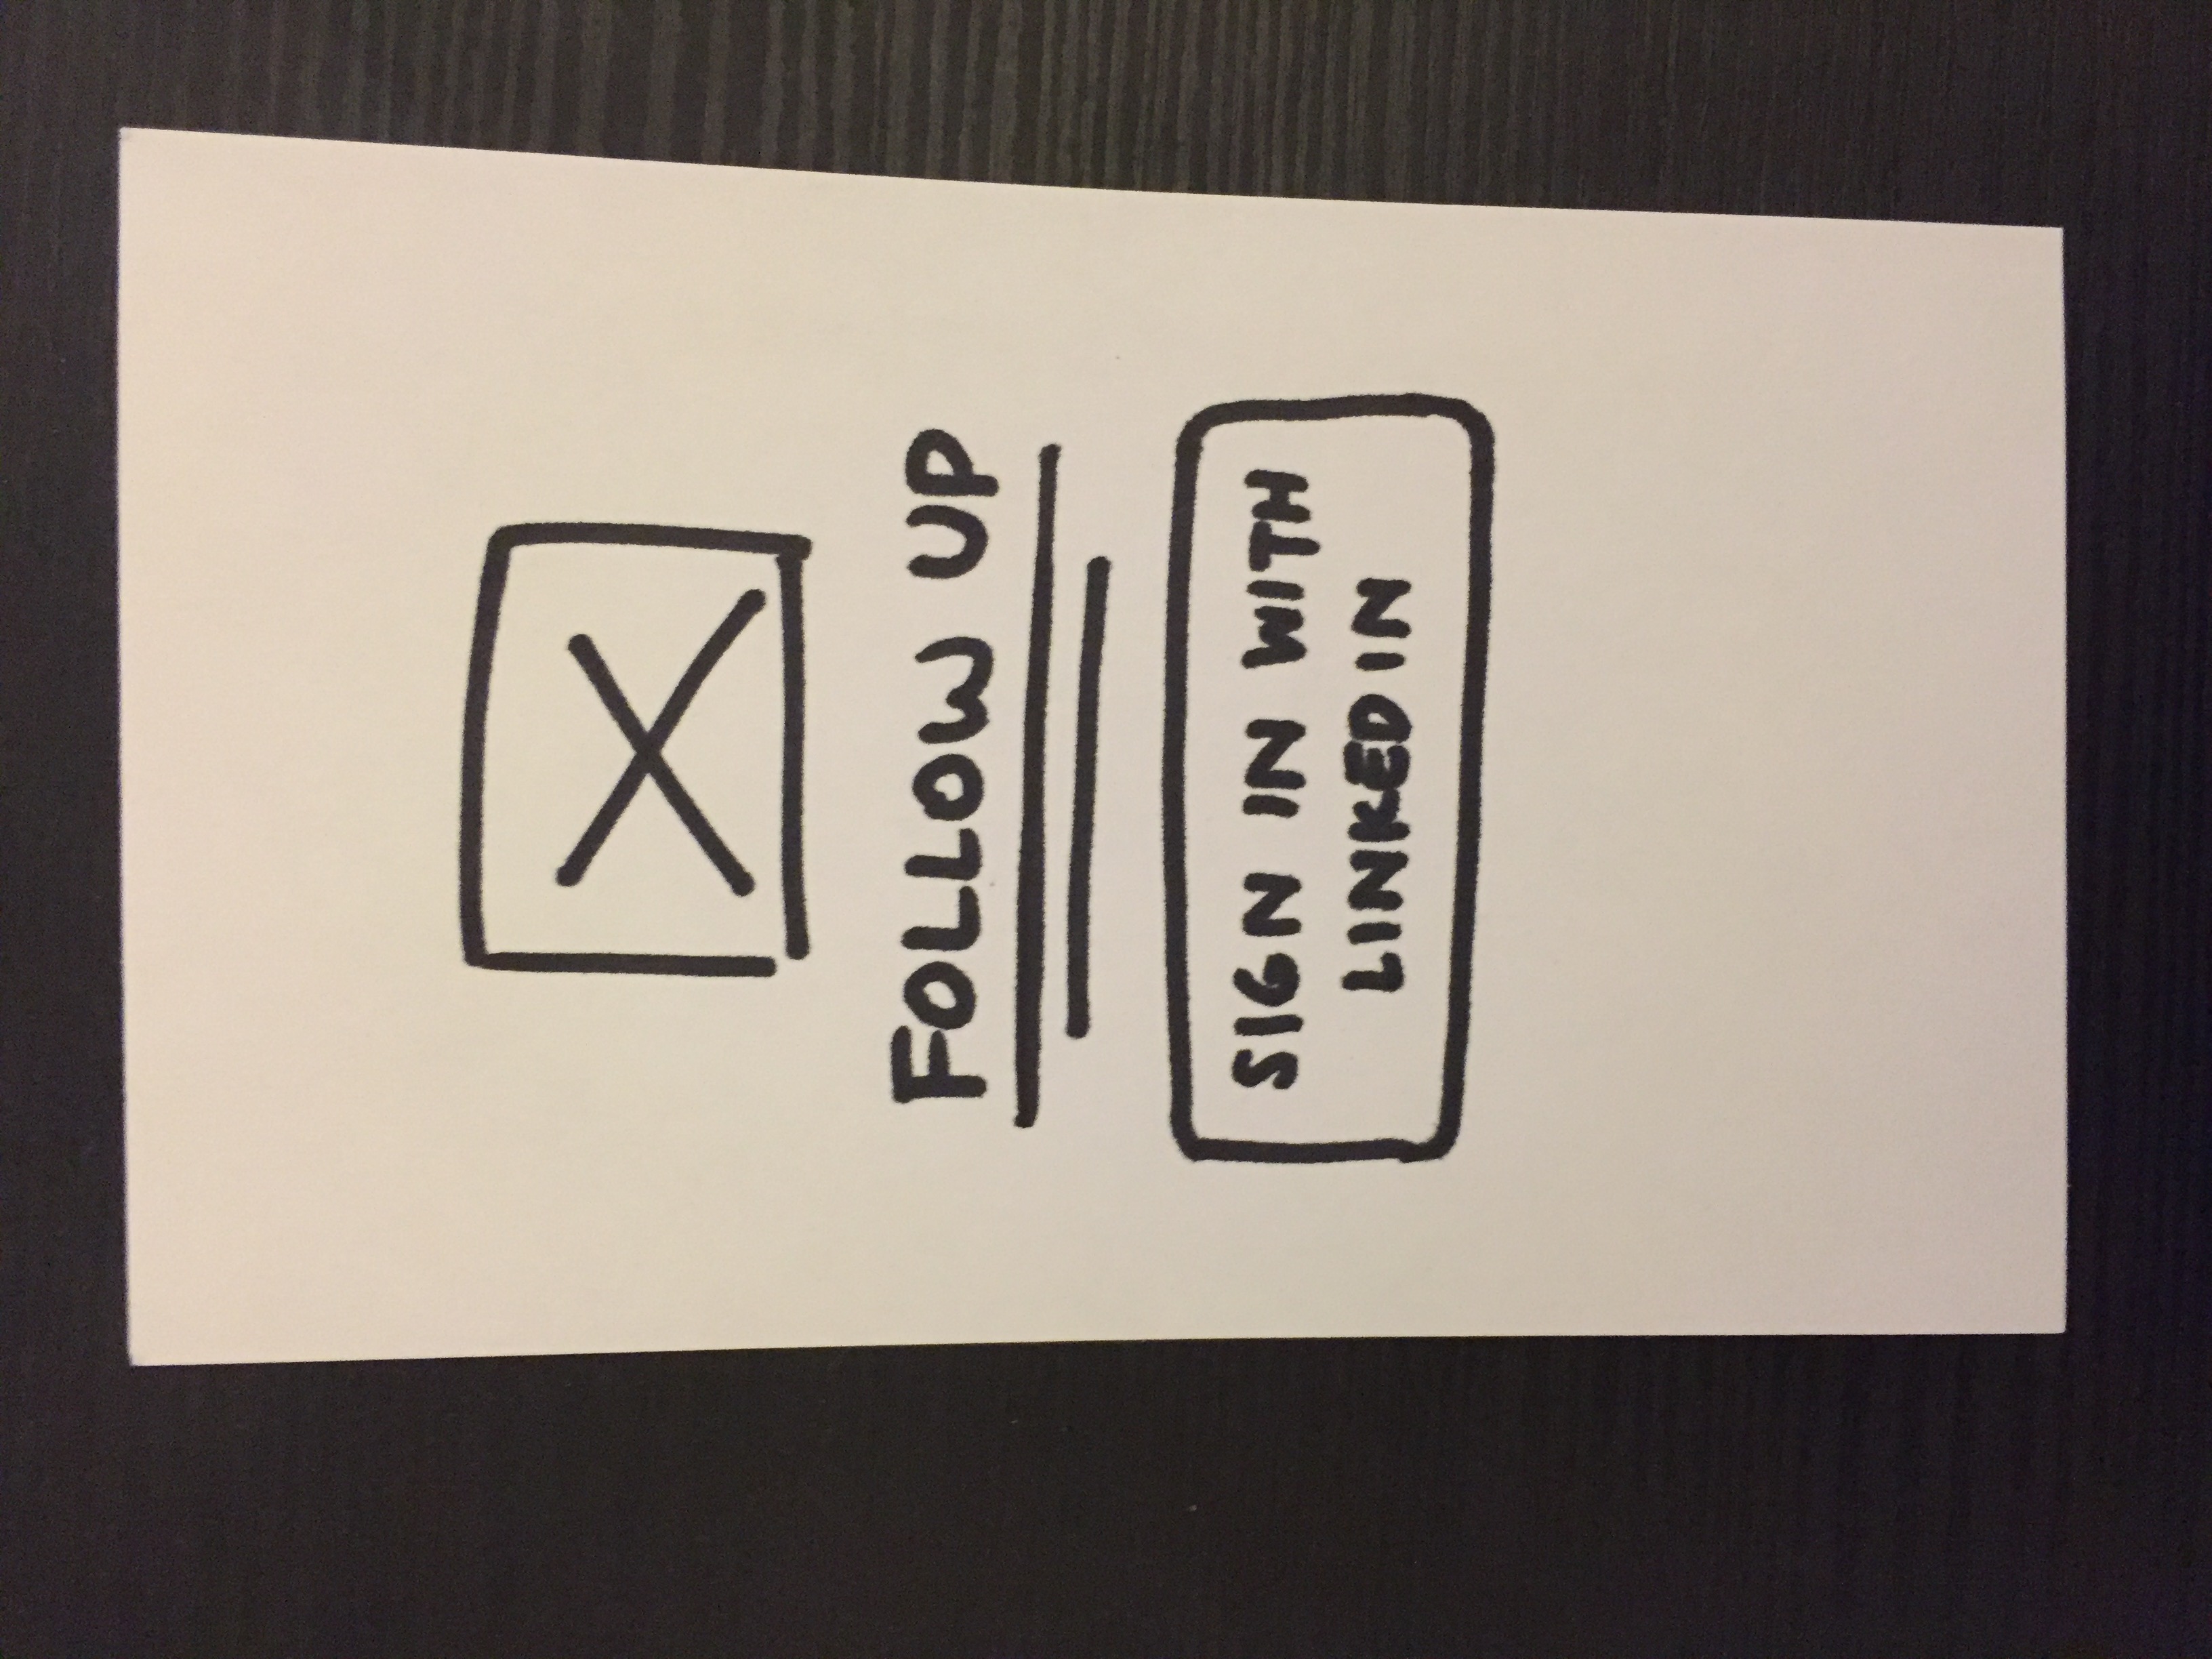 FOLLOW UP
SIGN IN WITH
LINKEDIN